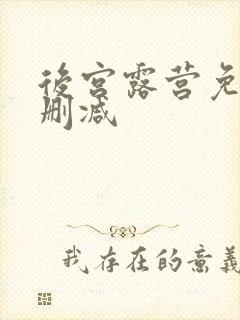 後宫露营免
删减
我存在的意義